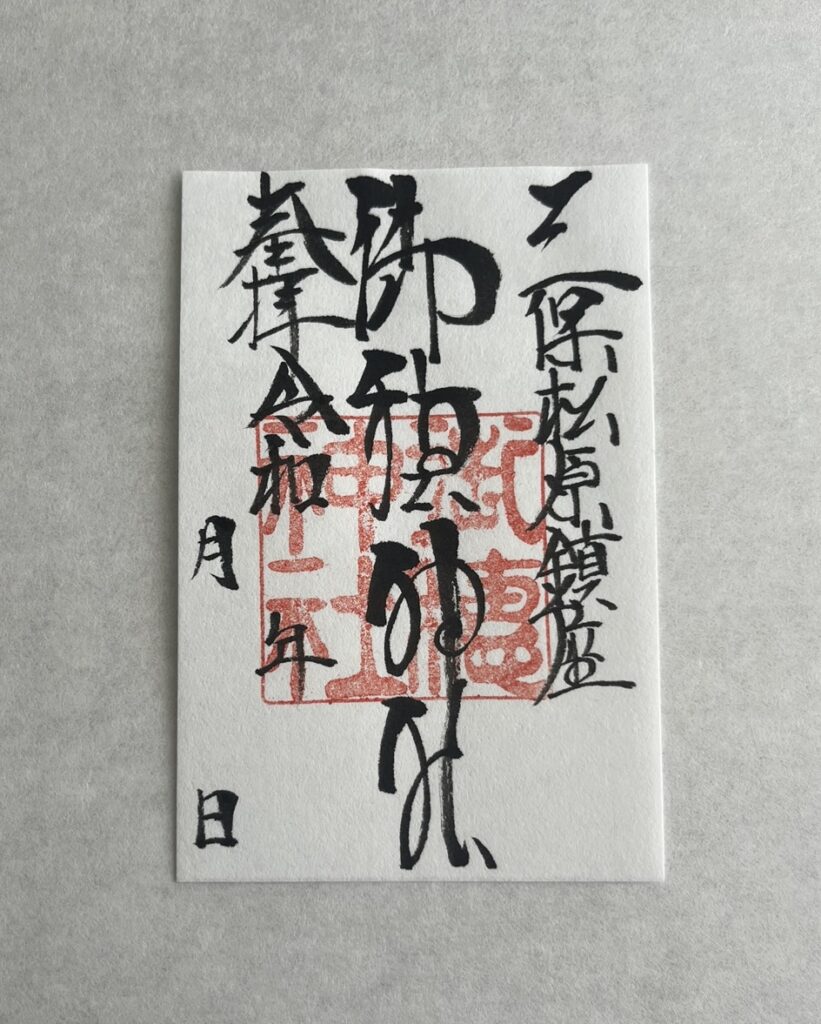 三保松原鎮座
御穂神社
奉拝 令和 年
月 日
御穂
神社